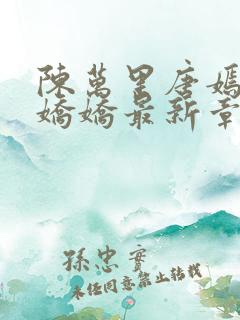 陳萬里唐嫣
嬌嬌最新章
孫忠實
未經同意禁止轉載